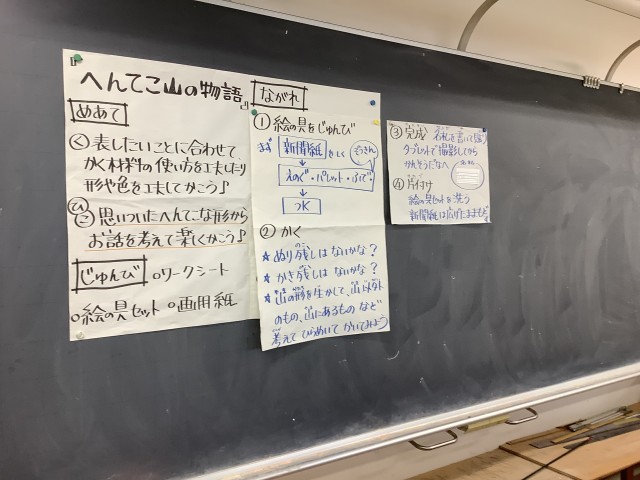 「へんてこ山の物語」
めあて
く 表したいことに合わせて、
かく材料の使い方を工夫したり
形や色を工夫してかこう♪
ひ 思いついたへんてこな形から
お話を考えて楽しくかこう♪
じゅんび ○ワークシート
○絵の具セット ○画用紙
ながれ
① 絵の具をじゅんび
まず 新聞紙 をしく ぞうきん
↓
えのぐ・パレット・ふで
↓
水
② かく
★ ぬり残しはないかな？
★ かき残しはないかな？
★ 山の形を生かして、山以外
のもの、山にあるものなど
考えて ひらめいて かいてみよう
③ 完成 名札を書いて貼り
タブレットで撮影してから
かんそうだなへ
④ 片付け
絵の具セットを洗う
新聞紙は広げたままで